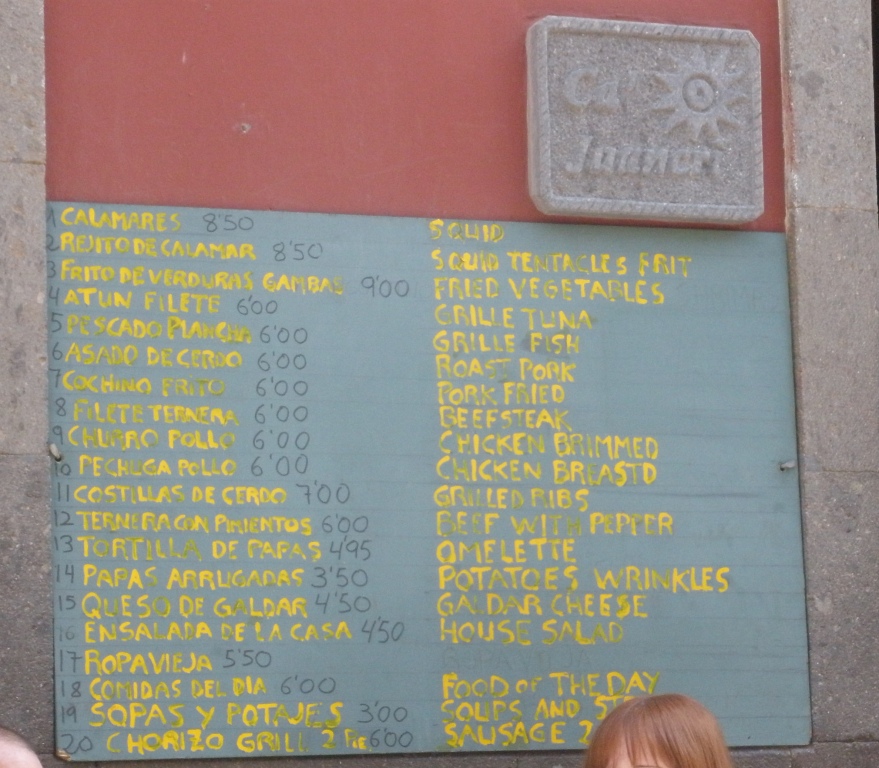 Ca'
Juaneri
1 CALAMARES 8'50 SQUID
2 REJITO DE CALAMAR 8'50 SQUID TENTACLES FRIT
3 FRITO DE VERDURAS GAMBAS 9'00 FRIED VEGETABLES
4 ATUN FILETE 6'00 GRILLE TUNA
5 PESCADO PLANCHA 6'00 GRILLE FISH
6 ASADO DE CERDO 6'00 ROAST PORK
7 COCHINO FRITO 6'00 PORK FRIED
8 FILETE TERNERA 6'00 BEEFSTEAK
9 CHURRO POLLO 6'00 CHICKEN BRIMMED
10 PECHUGA POLLO 6'00 CHICKEN BREASTD
11 COSTILLAS DE CERDO 7'00 GRILLED RIBS
12 TERNERA CON PIMIENTOS 6'00 BEEF WITH PEPPER
13 TORTILLA DE PAPAS 4'95 OMELETTE
14 PAPAS ARRUGADAS 3'50 POTATOES WRINKLES
15 QUESO DE GALDAR 4'50 GALDAR CHEESE
16 ENSALADA DE LA CASA 4'50 HOUSE SALAD
17 ROPAVIEJA 5'50
18 COMIDAS DEL DIA 6'00 FOOD OF THE DAY
19 SOPAS Y POTAJES 3'00 SOUPS AND
20 CHORIZO GRILL 2 6'00 SAUSAGE 2